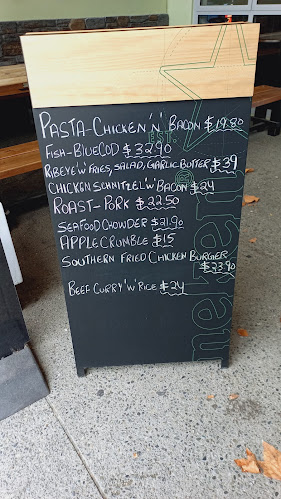 PASTA-CHICKEN 'N' BACON $19.80
FISH-BLUECOD $32.90
RIBEYE 'N' FRIES, SALAD, GARLIC BUTTER $39
CHICKEN SCHNITZEL 'W' BACON $24
ROAST-PORK $22.50
SEAFOOD CHOWDER $21.90
APPLECRUMBLE $15
SOUTHERN FRIED CHICKEN BURGER
$23.90
BEEF CURRY 'W' RICE $24
EST.